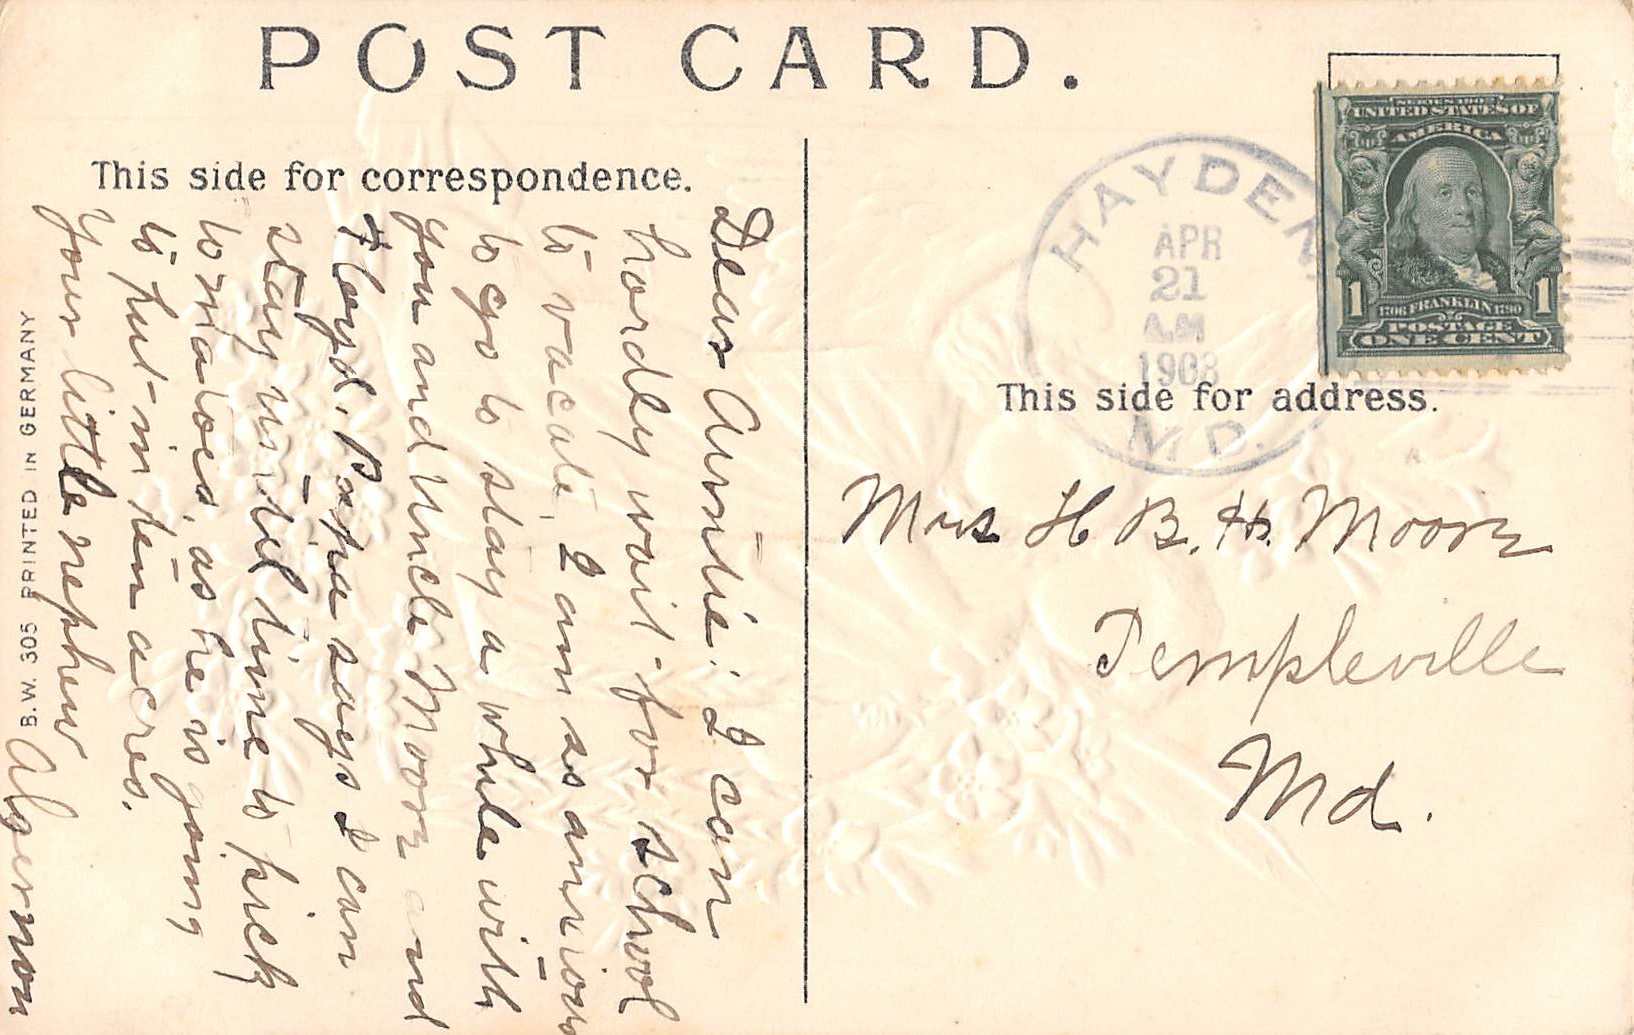 POST CARD.
This side for correspondence.
Dear Auntie: I can
hardly wait for school
to vacate, I am so anxious
to go to stay a while with
you and Uncle Moore and
Floyd. Papa says I can
stay until time to pick
tomatoes, as he is going
to put in ten acres.
Your little nephew
Algernon
B.W. 305 PRINTED IN GERMANY
HAYDEN
APR
21
A.M
1908
MD.
SERIES 1902
UNITED STATES OF
AMERICA
1706 FRANKLIN 1790
POSTAGE
1 ONE CENT 1
This side for address.
Mrs H. B. H. Moore
Templeville
Md.